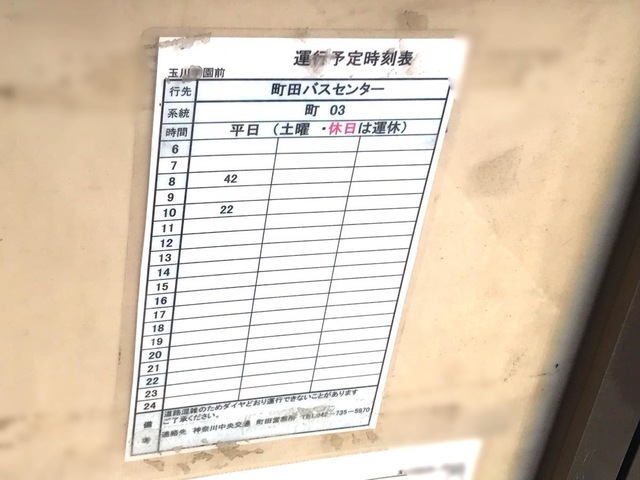 運行予定時刻表
玉川学園前
行先 町田バスセンター
系統 町 03
時間 平日 (土曜・休日は運休)
6
7
8 42
9
10 22
11
12
13
14
15
16
17
18
19
20
21
22
23
24
備考 道路混雑のためダイヤどおり運行できないことがあります
ご了承ください。
連絡先 神奈川中央交通 町田営業所 TEL 042-735-5970